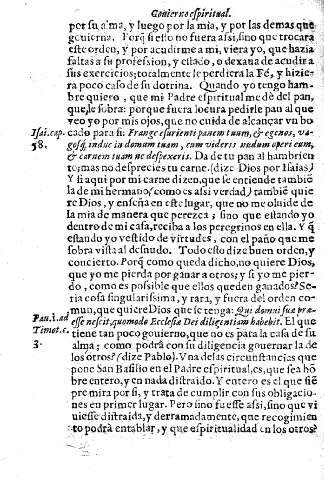 Gouierno espiritual.
por su alma, y luego por la mia, y por las demas que
gouierna. Porq̃ si ello no fuera assi, sino que trocara
este orden, y por acudirme a mi, viera yo, que hazia
faltas a su profession, y estado, o dexaua de acudir a
sus exercicios; totalmente le perdiera la Fé, y hizie-
ra poco caso de su dotrina. Quando yo tengo ham-
bre quiero, que mi Padre espiritual me dè del pan,
que le sobra: porque fuera locura pedirle pan al que
veo yo por mis ojos, que no cuida de alcançar vn bo
Isai. cap. 58.
cado para si: Frange esurienti panem tuum, & egenos, va-
gosq́; induc in domum tuam, cum videris nudum operi eum,
& carnem tuam ne despexeris. Da de tu pan al hambrien
to; mas no desprecies tu carne. (dize Dios por Isaias)
Y si aqui por mi carne dizen, que se entiende tambiẽ
la de mi hermano (como es assi verdad) tambiẽ quie
re Dios, y enseña en este lugar, que no me oluide de
la mia de manera que perezca; sino que estando yo
dentro de mi casa, reciba a los peregrinos en ella. Y q̃
estando yo vestido de virtudes, con el paño que me
sobra vista al desnudo. Todo esto dize buen orden, y
concierto. Porq̃ como queda dicho, no quiere Dios,
que yo me pierda por ganar a otros; y si yo me pier-
do, como es possible que ellos queden ganados? Se-
ria cosa singularissima, y rara, y fuera del orden co-
mun, que quiere Dios que se tenga: Qui domui suæ præ-
Pau. 1. ad Timot. c. 3.
esse nescit, quomodo Ecclesiæ Dei diligentiam habebit. El que
tiene tan poco gouierno, que no es para la casa de su
alma; como podrà con su diligencia gouernar la de
los otros? (dize Pablo). Vna de las circunstancias que
pone San Basilio en el Padre espiritual, es, que sea hõ
bre entero, y en nada distraido. Y entero es el que siẽ
pre mira por si, y trata de cumplir con sus obligacio-
nes en primer lugar. Pero sino fuesse assi, sino que vi
uiesse distraida, y derramadamente, que recogimien
to podrà entablar, y que espiritualidad en los otros?